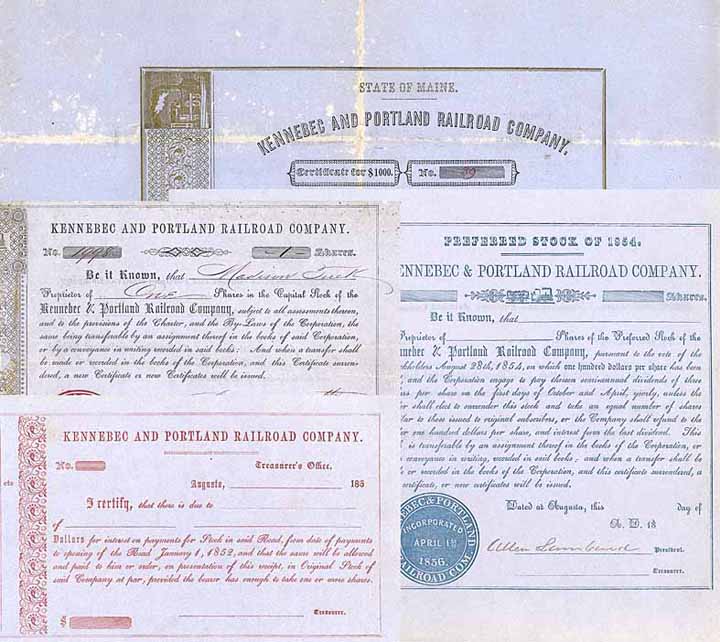 STATE OF MAINE.
KENNEBEC AND PORTLAND RAILROAD COMPANY.
Certificate for $1000. No. 39
KENNEBEC AND PORTLAND RAILROAD COMPANY.
No. 1498 -1- Shares.
Be it Known, that Madison Tuck
Proprietor of One Shares in the Capital Stock of the
Kennebec & Portland Railroad Company, subject to all assessments thereon,
and to the provisions of the Charter, and the By-Laws of the Corporation, the
same being transferable by an assignment thereof in the books of said Corporation,
or by a conveyance in writing recorded in said books: And when a transfer shall
be made or recorded in the books of the Corporation, and this Certificate surren-
dered, a new Certificate or new Certificates will be issued.
PREFERRED STOCK OF 1854.
ENNEBEC & PORTLAND RAILROAD COMPANY.
Shares.
Be it Known, that
Proprietor of Shares of the Preferred Stock of the
nnebec & Portland Railroad Company, pursuant to the vote of the
ckholders August 28th, 1854, on which one hundred dollars per share has been
and the Corporation engage to pay thereon semi-annual dividends of three
rs per share on the first days of October and April, yearly, unless the
r shall elect to surrender this stock and take an equal number of shares
lar to those issued to original subscribers, or the Company shall refund to the
r one hundred dollars per share, and interest from the last dividend. This
is transferable by an assignment thereof in the books of the Corporation, or
conveyance in writing, recorded in said books; and when a transfer shall be
or recorded in the books of the Corporation, and this certificate surrendered, a
certificate, or new certificates will be issued.
Dated at Augusta, this day of
A. D. 18
Allen Lambard President.
Treasurer.
KENNEBEC & PORTLAND
INCORPORATED
APRIL 1ST
1836.
RAILROAD COM.
KENNEBEC AND PORTLAND RAILROAD COMPANY.
No. Treasurer's Office.
Augusta, 185
I certify, that there is due to
of
Dollars for interest on payments for Stock in said Road, from date of payments
to opening of the Road January 1, 1852, and that the same will be allowed
and paid to him or order, on presentation of this receipt, in Original Stock of
said Company at par, provided the bearer has enough to take one or more shares.
$ Treasurer.